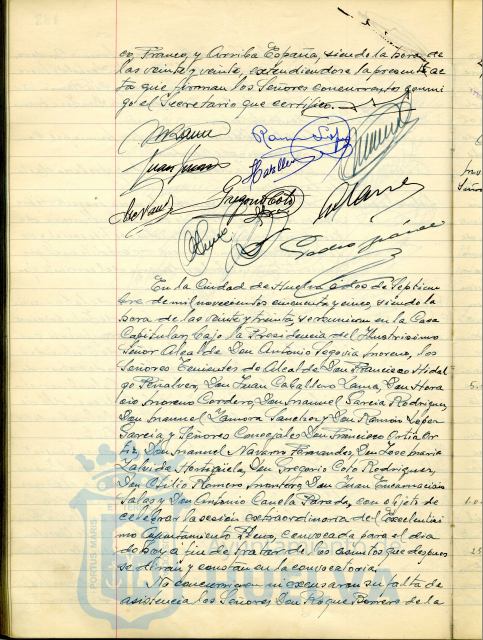 co, Franco, y Arriba España, siendo la hora de
las veinte y veinte, extendiendose la presente ac-
ta que firman los Señores concurrentes conmi-
go el Secretario que certifico.
Juan
Ramon Lopez
Gregorio Coto
Pedro
En la Ciudad de Huelva a dos de Septiem
bre de mil novecientos cincuenta y cinco, siendo la
hora de las veinte y treinta, se reunieron en la Casa
Capitular, bajo la Presidencia del Ilustrisimo
Señor Alcalde Don Antonio Segovia Moreno, los
Señores Tenientes de Alcalde Don Francisco Hidal
go Peñalver, Don Juan Caballero Lama, Don Hora
cio Moreno Cordero, Don Manuel Garcia Rodriguez,
Don Manuel Zamora Sanchez y Don Ramon Lopez
Garcia, y Señores Concejales Don Francisco Ortiz Or
tiz, Don Manuel Navarro Fernandez, Don Jose Maria
de Don Gregorio Coto Rodriguez,
Don Romero Montero, Don Juan Encarnacion
Sales y Don Antonio Canela Parrado, con objeto de
celebrar la sesión extraordinaria del Excelentisi
mo Ayuntamiento Pleno, convocada para el dia
de hoy a fin de tratar de los asuntos que despues
se diran y constan en la convocatoria.
No concurrieron ni excusaron su falta de
asistencia los Señores Don Roque Borrero de la
PORTUS MARIS